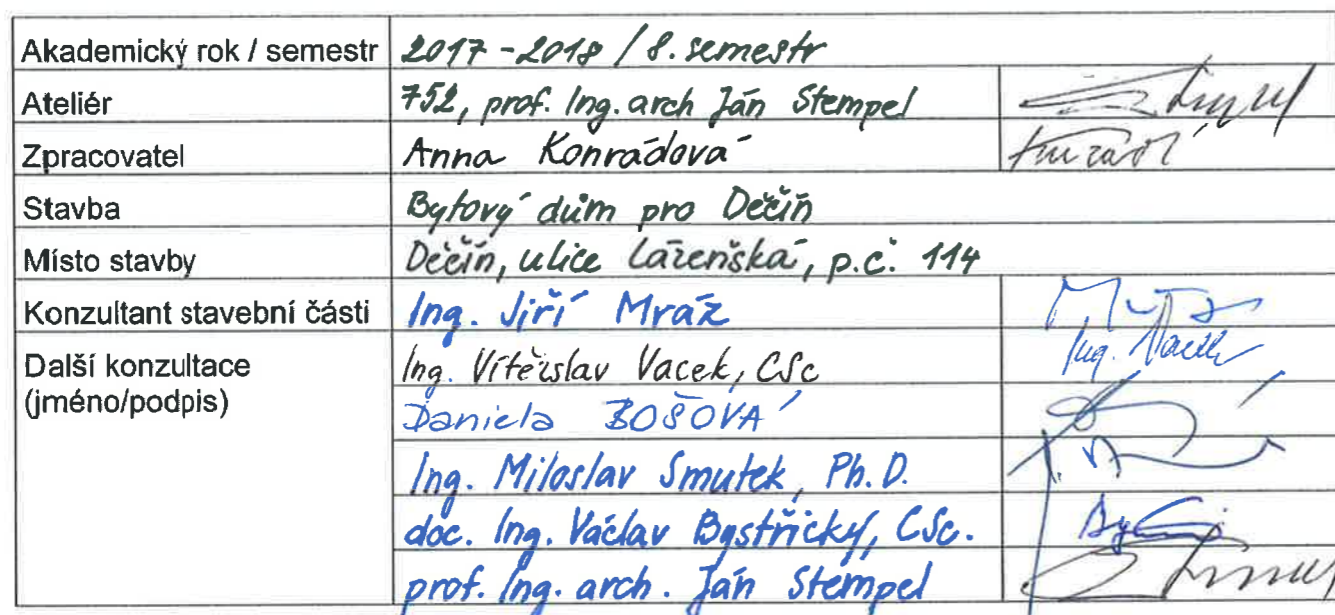 Akademický rok / semestr 2017-2018 / 8. semestr
Ateliér 752, prof. Ing. arch Ján Stempel
Zpracovatel Anna Konrádová
Stavba Bytový dům pro Děčín
Místo stavby Děčín, ulice Lázeňská, p.č. 114
Konzultant stavební části Ing. Jiří Mráz
Další konzultace Ing. Vítězslav Vacek, CSc
(jméno/podpis) Daniela BOŠOVÁ
Ing. Miloslav Smutek, Ph.D.
doc. Ing. Václav Bystřický, CSc.
prof. Ing. arch. Ján Stempel